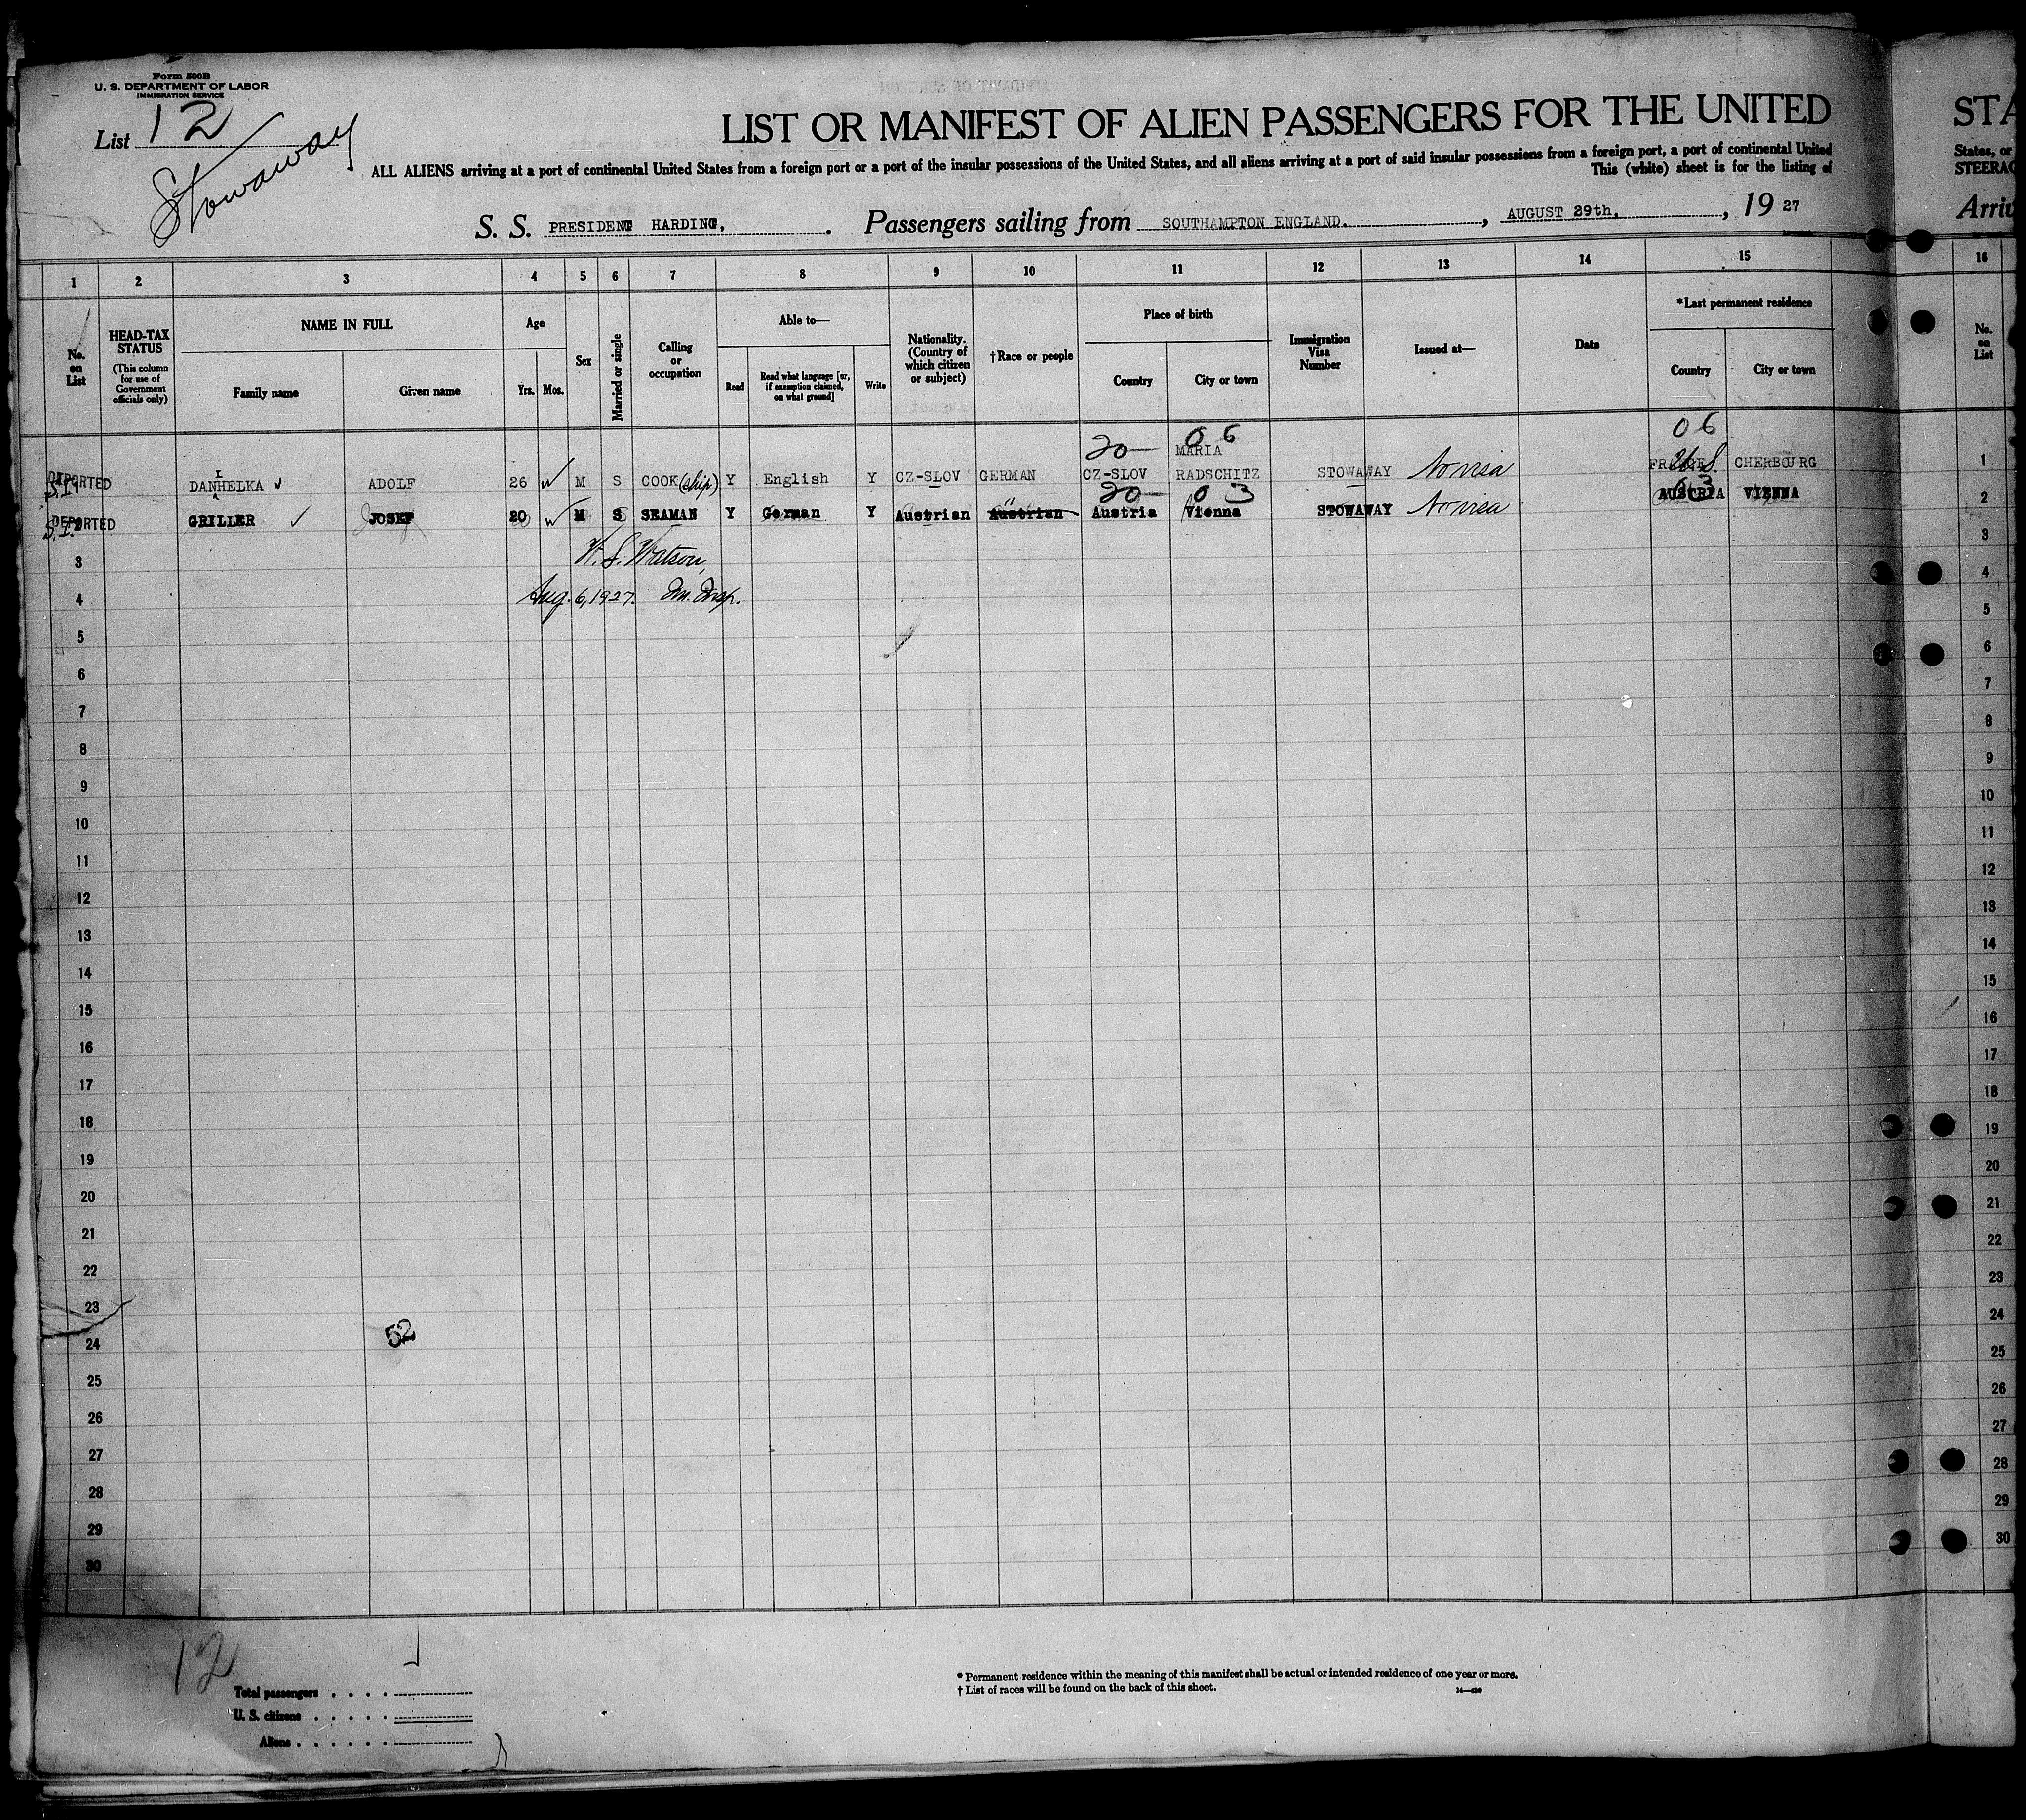 Form 500B
U. S. DEPARTMENT OF LABOR
IMMIGRATION SERVICE
List 12
Stowaway
LIST OR MANIFEST OF ALIEN PASSENGERS FOR THE UNITED
STA
ALL ALIENS arriving at a port of continental United States from a foreign port or a port of the insular possessions of the United States, and all aliens arriving at a port of said insular possessions from a foreign port, a port of continental United
States, or
This (white) sheet is for the listing of
STEERAG
S. S. PRESIDENT HARDING, . Passengers sailing from SOUTHAMPTON ENGLAND. , AUGUST 29th, , 19 27
Arriv
1 2 3 4 5 6 7 8 9 10 11 12 13 14 15 16
No. on List
HEAD-TAX STATUS
(This column for use of Government officials only)
NAME IN FULL
Family name
Given name
Age
Yrs.
Mos.
Sex
Married or single
Calling or occupation
Able to—
Read
Read what language [or, if exemption claimed, on what ground]
Write
Nationality. (Country of which citizen or subject)
†Race or people
Place of birth
Country
City or town
Immigration Visa Number
Issued at—
Date
*Last permanent residence
Country
City or town
No. on List
20— 06 06
MARIA
DEPORTED S.I. DANHELKA I ADOLF 26 M S COOK (ship) Y English Y CZ-SLOV GERMAN CZ-SLOV RADSCHITZ STOWAWAY No visa FRANCE CHERBOURG 1
20— 03 03
DEPORTED S.I. GRILLER JOSEF 20 M S SEAMAN Y German Y Austrian Austrian Austria Vienna STOWAWAY No visa AUSTRIA VIENNA 2
3 W. S. Watson, 3
4 Aug. 6, 1927. Im. Insp. 4
5 5
6 6
7 7
8 8
9 9
10 10
11 11
12 12
13 13
14 14
15 15
16 16
17 17
18 18
19 19
20 20
21 21
22 22
23 23
24 52 24
25 25
26 26
27 27
28 28
29 29
30 30
12
Total passengers . . . .
U. S. citizens . . . . .
Aliens . . . . . .
* Permanent residence within the meaning of this manifest shall be actual or intended residence of one year or more.
† List of races will be found on the back of this sheet.